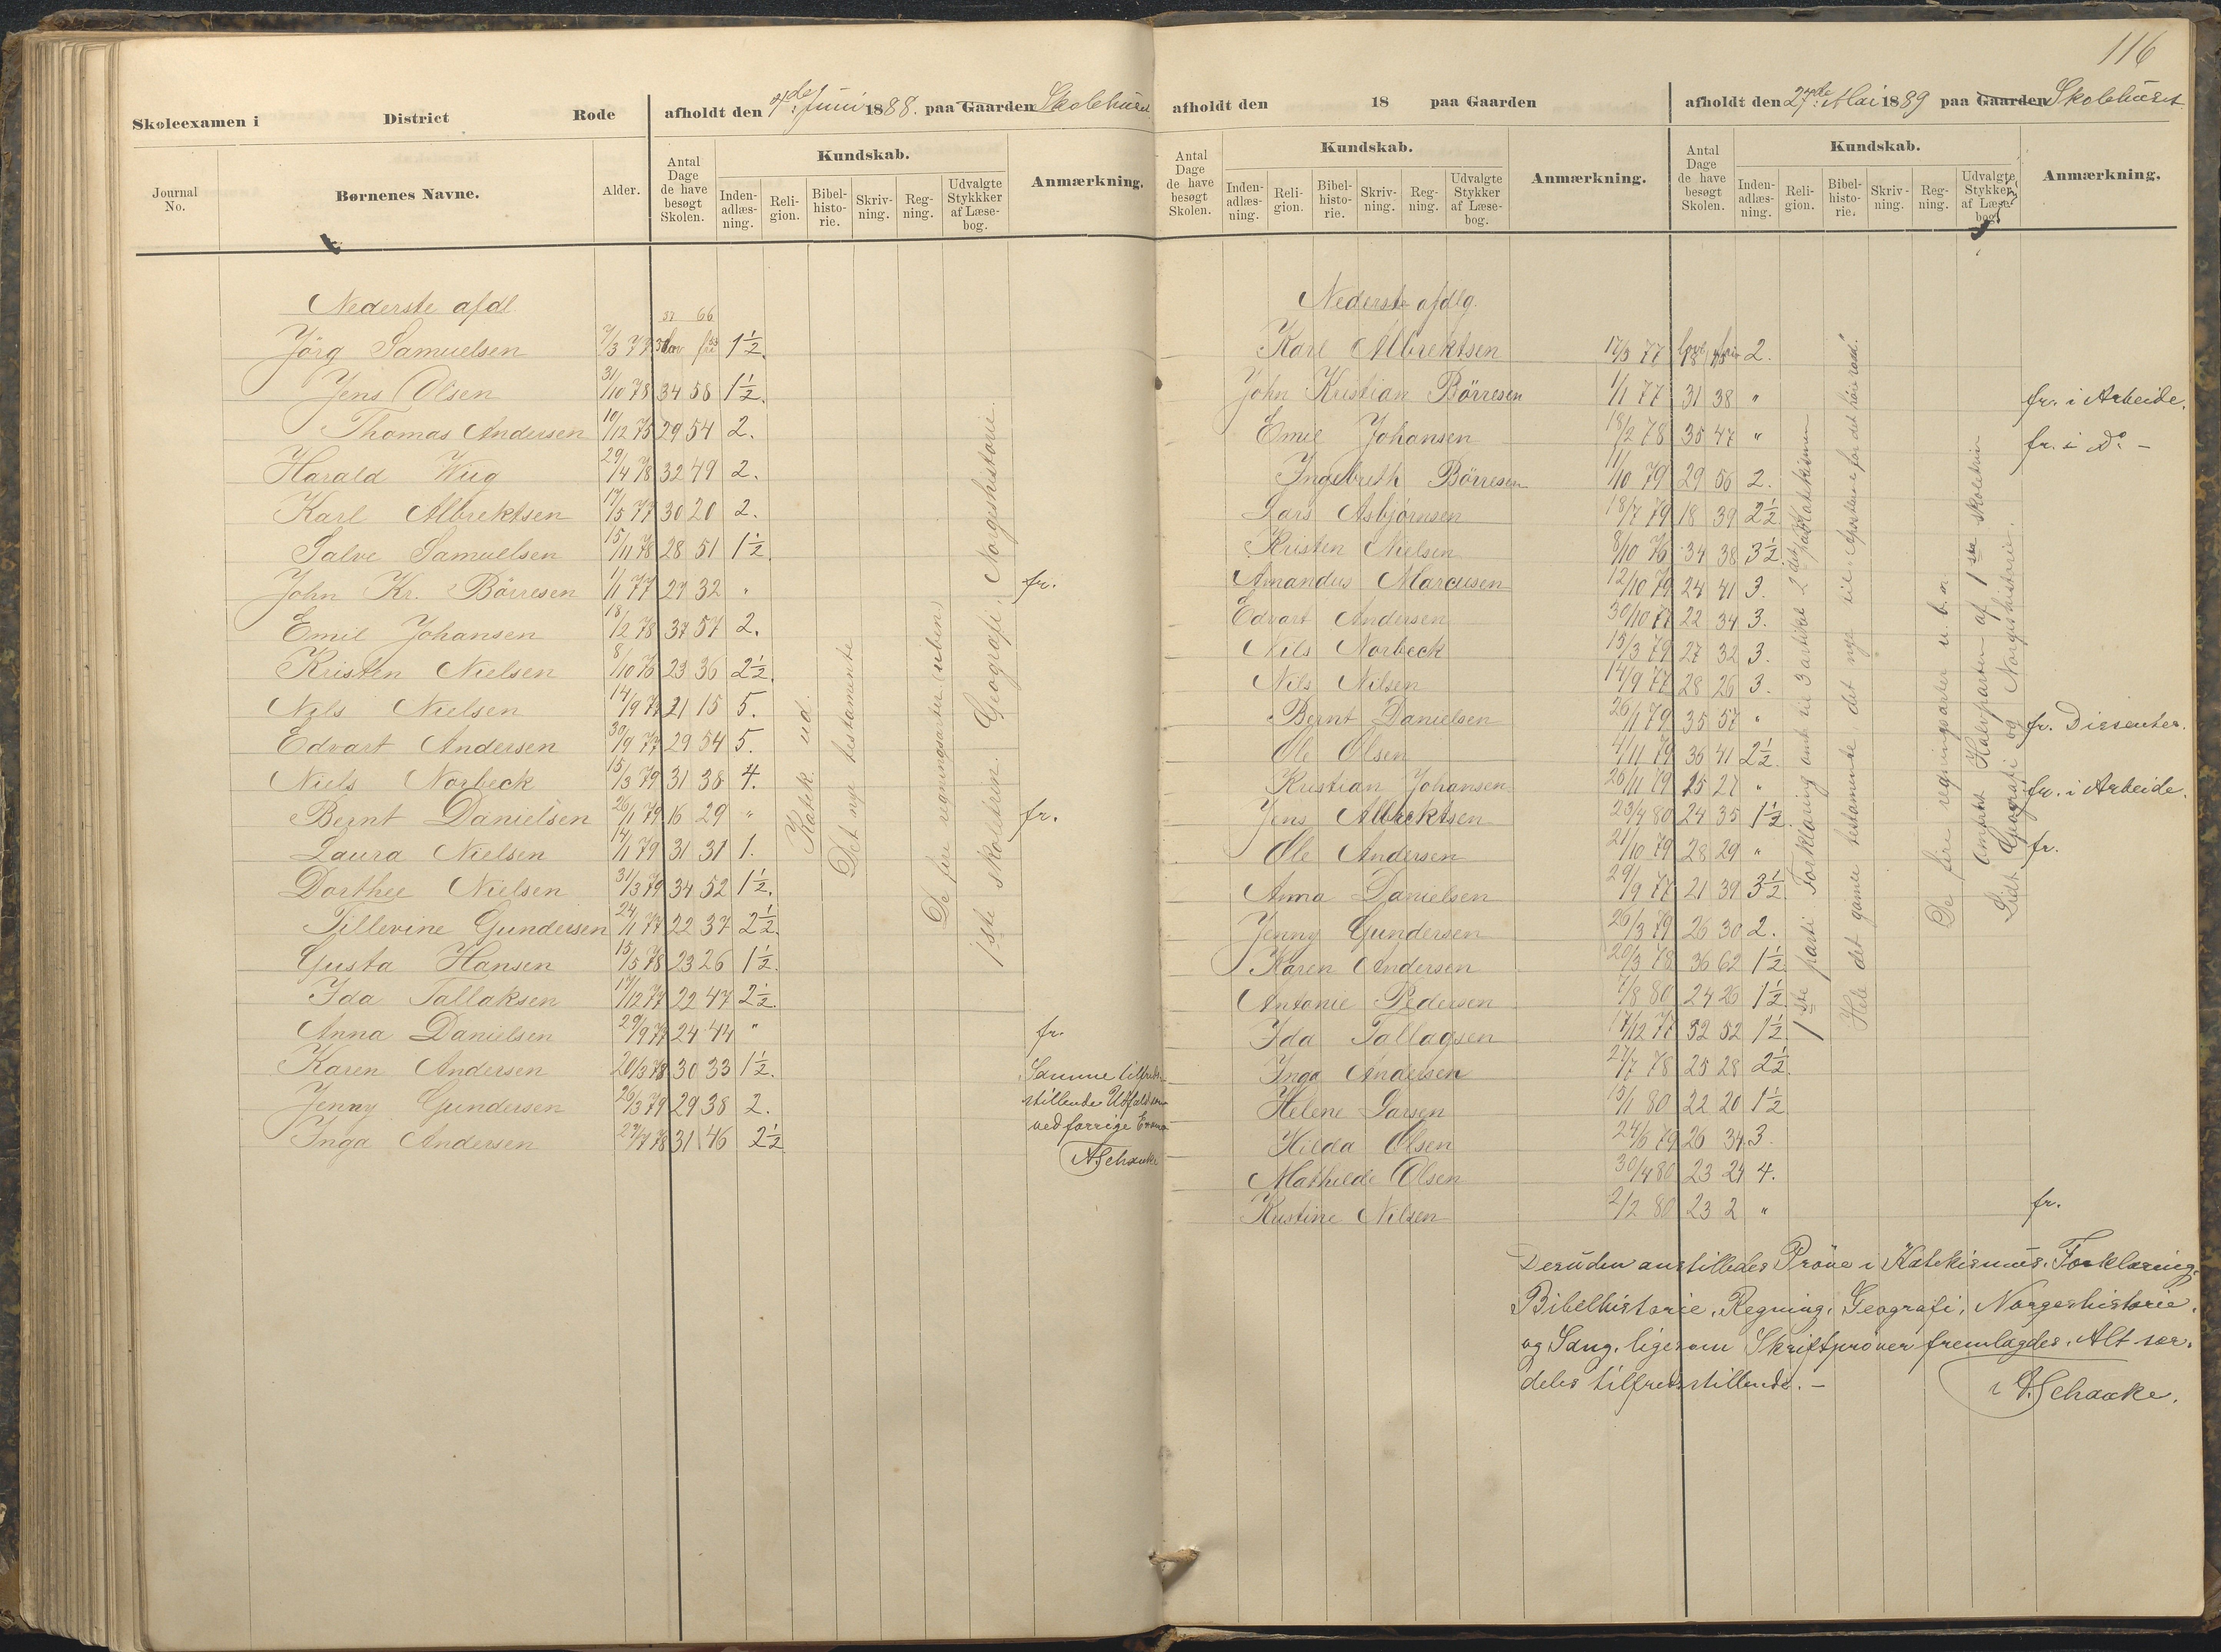 116
Skoleexamen i District Rode afholdt den 7de Juni 1888. paa Gaarden Skolehuset
Journal No. Børnenes Navne. Alder. Antal Dage de have besøgt Skolen. Kundskab. Anmærkning.
Inden-adlæs-ning. Reli-gion. Bibel-histo-rie. Skriv-ning. Reg-ning. Udvalgte Stykkker af Læse-bog.
Nederste afdl.
Jörg Samuelsen 7/3 77 1½.
Jens Olsen 31/10 78 34 58 1½.
Thomas Andersen 10/12 75 29 54 2.
Harald Wug 29/4 78 32 49 2.
Karl Albrektsen 17/5 77 30 20 2.
Salve Samuelsen 15/11 78 28 51 1½.
John Kr. Börresen 1/1 77 27 32 " fr.
Emil Johansen 18/2 78 37 57 2.
Kristen Nielsen 8/10 76 23 36 2½.
Nils Nielsen 14/9 77 21 15 5.
Edvart Andersen 30/9 77 29 54 5.
Niels Norbeck 15/3 79 31 38 4.
Bernt Danielsen 26/1 79 16 29 " fr.
Laura Nielsen 14/11 79 31 31 1.
Dorthee Nielsen 31/3 79 34 52 1½.
Tillevine Gundersen 24/11 77 22 37 2½.
Gusta Hansen 15/5 78 23 26 1½.
Ida Tallaksen 17/12 77 22 47 2½.
Anna Danielsen 29/9 77 24 44 " fr.
Karen Andersen 20/3 78 30 33 1½.
Jenny Gundersen 26/3 79 29 38 2.
Inga Andersen 27/7 78 31 46 2½
Katek. ud.
Det nye testamente
De fire regningsarter (uben)
1ste skoletrin. Geografi, Norgeshistorie.
Samme tilfreds-
stillende Udfald som
ved forrige Exam
A Schaacke
afholdt den 18 paa Gaarden
Antal Dage de have besøgt Skolen. Kundskab. Anmærkning.
Inden-adlæs-ning. Reli-gion. Bibel-histo-rie. Skriv-ning. Reg-ning. Udvalgte Stykker af Læse-bog.
afholdt den 27de Mai 1889 paa Gaarden Skolehuset
Antal Dage de have besøgt Skolen. Kundskab. Anmærkning.
Inden-adlæs-ning. Reli-gion. Bibel-histo-rie. Skriv-ning. Reg-ning. Udvalgte Stykker af Læse-bog.
Nederste afdlg.
Karl Albrektsen 17/5 77 2.
John Kristian Börresen 1/1 77 31 38 " fr. i Arbeide.
Emil Johansen 18/2 78 35 47 " fr. i Do. –
Ingebreth Börresen 11/10 79 29 56 2.
Lars Asbjörnsen 18/7 79 18 39 2½
Kristen Nielsen 8/10 76 34 38 3½
Amandus Marcusen 12/10 79 24 41 3.
Edvart Andersen 30/10 77 22 34 3.
Nils Norbeck 15/3 79 27 32 3.
Nils Nilsen 14/9 77 28 26 3.
Bernt Danielsen 26/1 79 35 57 " fr. Dissenter.
Ole Olsen 4/11 79 36 41 2½
Kristian Johansen 26/11 79 25 27 " fr. i Arbeide.
Jens Albrektsen 23/4 80 24 35 1½.
Ole Andersen 21/10 79 28 29 " fr.
Anna Danielsen 29/9 77 21 39 3½
Jenny Gundersen 26/3 79 26 30 2.
Karen Andersen 20/3 78 36 62 1½
Antonie Pedersen 7/8 80 24 26 1½
Ida Tallagsen 17/12 77 32 52 1½
Inga Andersen 27/7 78 25 28 2½
Helene Larsen 13/1 80 22 20 1½
Hilda Olsen 24/6 79 26 34 3.
Mathilde Olsen 30/4 80 23 24 4.
Kristine Nilsen 2/2 80 23 2 " fr.
1ste parti Forklaring omt. til 3 artikel 2det parti Katekismen
Hele det gamle testamente, det nye til Apostlene for det høie råd.
De fire regningsarter u. b. n.
Omtrent Halvparten af 1ste skoletrin
Lidt Geografi og Norgeshistorie.
Desuden anstilledes Pröve i Katekismus, Forklaring,
Bibelhistorie, Regning, Geografi, Norgeshistorie,
og Sang, ligesom Skriftprøver fremlagdes. Alt sær-
deles tilfredsstillende. –
A Schaacke.